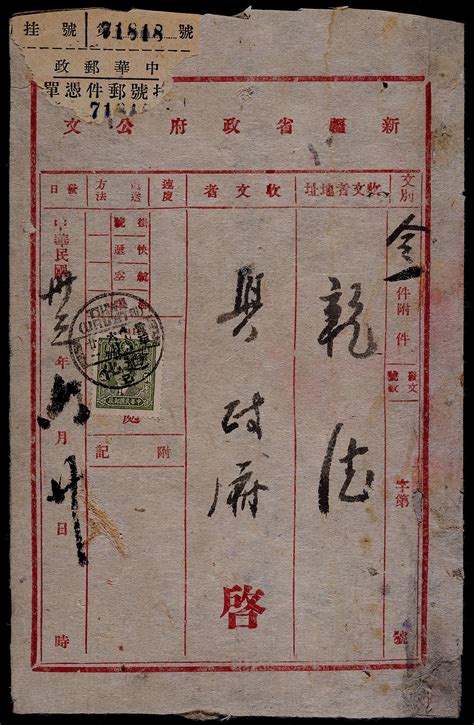 號 71848 第 號 挂
中華郵政
挂號郵件憑單
71848
新疆省政府公文
文別
令
件附件
發文號數
字第 號
收文者地址
乾德
收文者
縣政府
啓
速度
遞送方法
附記
發日
中華民國卅三年六月廿日 時
迪化